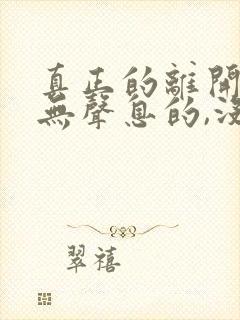 真正的離開
無聲息的,沒
翠禧